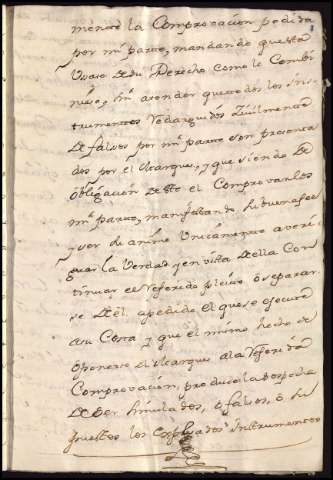 menore la Comprovacion pedida
por mi parte, mandando que esta
Usase de su Derecho como le Combi
niese, y sin atender que todos los ins
trumentos redarguidos Zivilmente
de falsos por mi parte son presenta
dos por el Marques, y que siendo de
obligacion de este el Comprovarlos
mi parte, manifestando su buena fee
y ser su animo Unicamente averi
guar la Verdad, y en vista de ella Con
tinuar el referido pleito ò separar
se de el, a pedido el que se ejecute
a su Costa, y que el mismo hecho de
oponerse el Marques a la referida
Comprovacion, produce la sospecha
de ser simulados, ò falsos, ò su
puestos los expresados instrumentos